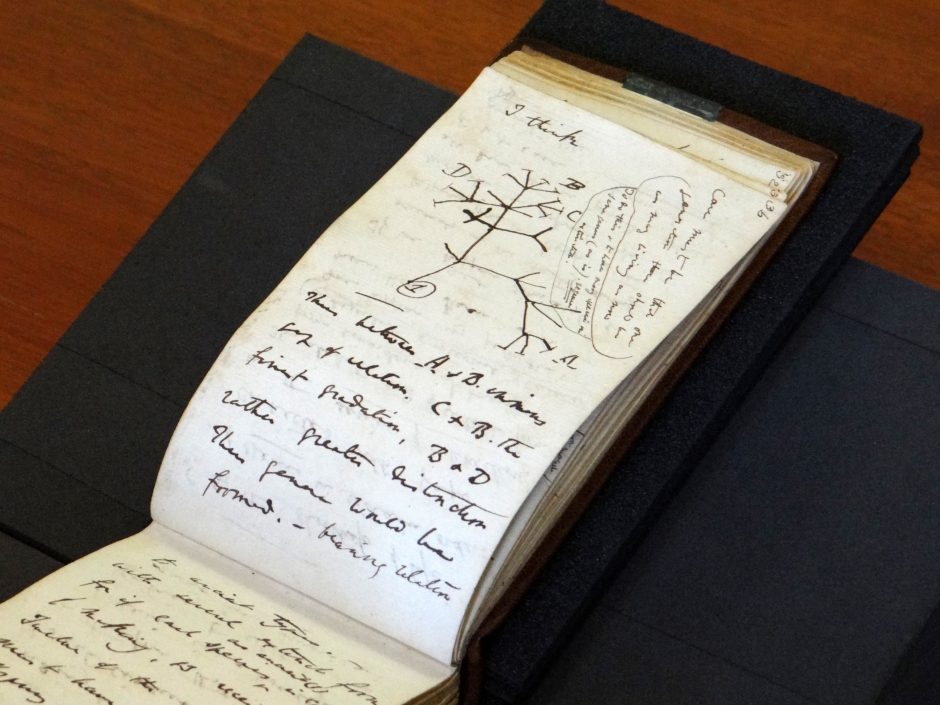 36
I think
D
B
C
A
1
Case must be that one
generation then should be
as many living as now
To do this & to have many species in
same genus (as is) requires
extinction.
Thus between A & B. immense
gap of relation. C & B. the
finest gradation, B & D
rather greater distinction
Thus genera would be
formed. — bearing relation
to ancient types. —
with several extinct forms
for if each species, an ancient
of making, 13 recent
Twelve of the
must have